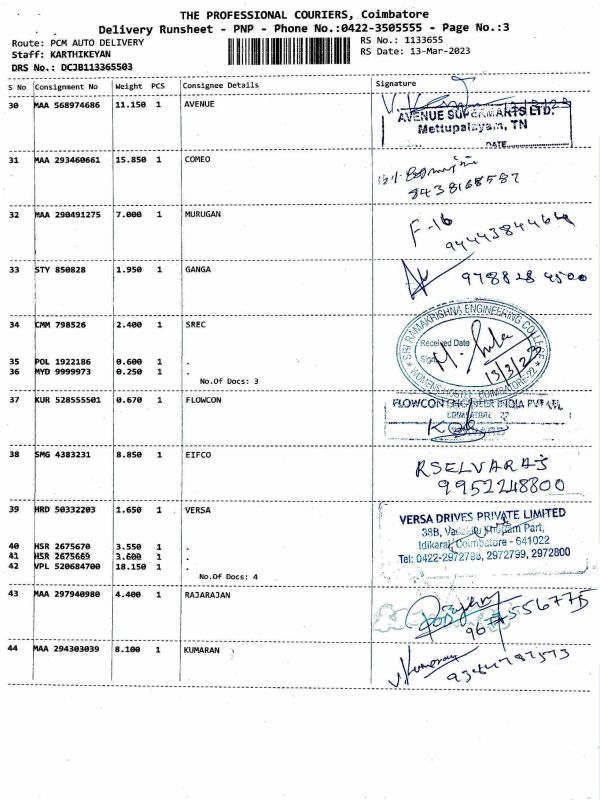 THE PROFESSIONAL COURIERS, Coimbatore
Delivery Runsheet - PNP - Phone No.:0422-3505555 - Page No.:3
Route: PCM AUTO DELIVERY
RS No.: 1133655
Staff: KARTHIKEYAN
RS Date: 13-Mar-2023
DRS No.: DCJB113365503
S No Consignment No Weight PCS Consignee Details Signature
30 MAA 568974686 11.150 1 AVENUE
AVENUE SUPERMARTS LTD.
Mettupalayam, TN
DATE
31 MAA 293460661 15.850 1 COMEO
9438168587
32 MAA 290491275 7.000 1 MURUGAN
F-16
9444384464
33 STY 850828 1.950 1 GANGA
9788284500
34 CMM 798526 2.400 1 SREC
SRI RAMAKRISHNA ENGINEERING COLLEGE
Received Date
13/3/23
WOMENS HOSTEL COIMBATORE-22
35 POL 1922186 0.600 1 .
36 MYD 9999973 0.250 1 .
No.Of Docs: 3
37 KUR 528555501 0.670 1 FLOWCON
FLOWCON ENGINEER INDIA PVT LTD,
COIMBATORE - 22
38 SMG 4383231 8.850 1 EIFCO
RSELVARAJ
9952248800
39 HRD 50332203 1.650 1 VERSA
VERSA DRIVES PRIVATE LIMITED
38B, Part,
Idikarai, Coimbatore - 641022
Tel: 0422-2972798, 2972799, 2972800
40 HSR 2675670 3.550 1 .
41 HSR 2675669 3.600 1 .
42 VPL 520684700 18.150 1 .
No.Of Docs: 4
43 MAA 297940980 4.400 1 RAJARAJAN
44 MAA 294303039 8.100 1 KUMARAN
Kumaran